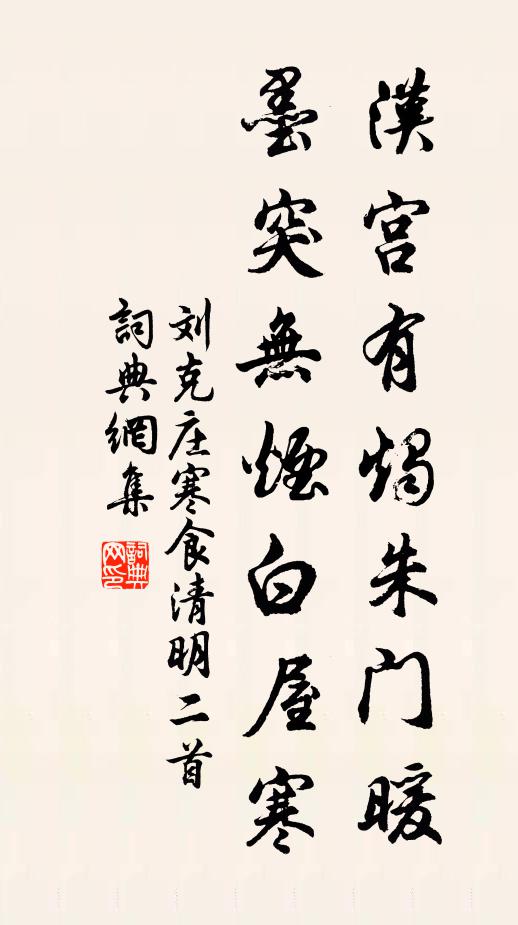 漢宫有燭朱门暖
墨突無煙白屋寒
刘克庄寒食清明二首
詞典網集
詞典网印